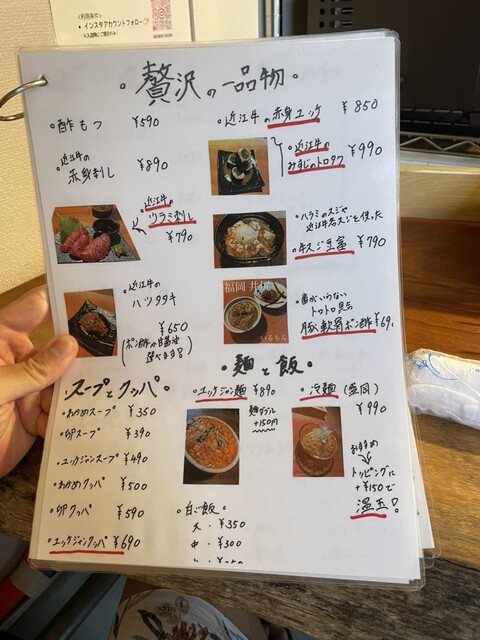 ・インスタアカウントフォロー
・贅沢の一品物・
・酢もつ ¥590
・近江牛の赤身ユッケ ¥850
・近江牛の
赤身刺し ¥890
・近江牛の
みすじのトロタク ¥990
・近江牛の
ツラミ刺し
¥790
・ハラミのスジや
近江牛名スジを使った
・牛スジ豆富 ¥790
・近江牛の
ハツタタキ
¥650
(ポン酢or甘醤油
選べます!)
福岡 井尻
いるもん
・歯がいらない
トロトロ見る
豚軟骨ポン酢 ¥69
・スープとクッパ・
・わかめスープ ¥350
・卵スープ ¥390
・ユッケジャンスープ ¥490
・わかめクッパ ¥500
・卵クッパ ¥590
・ユッケジャンクッパ ¥690
・麺と飯・
・ユッケジャン麺 ¥890
麺ダブル
+150円
・冷麺(盛岡)
¥990
おすすめ
トッピングに
+¥150で
温玉!
・白ご飯
大・¥350
中・¥300